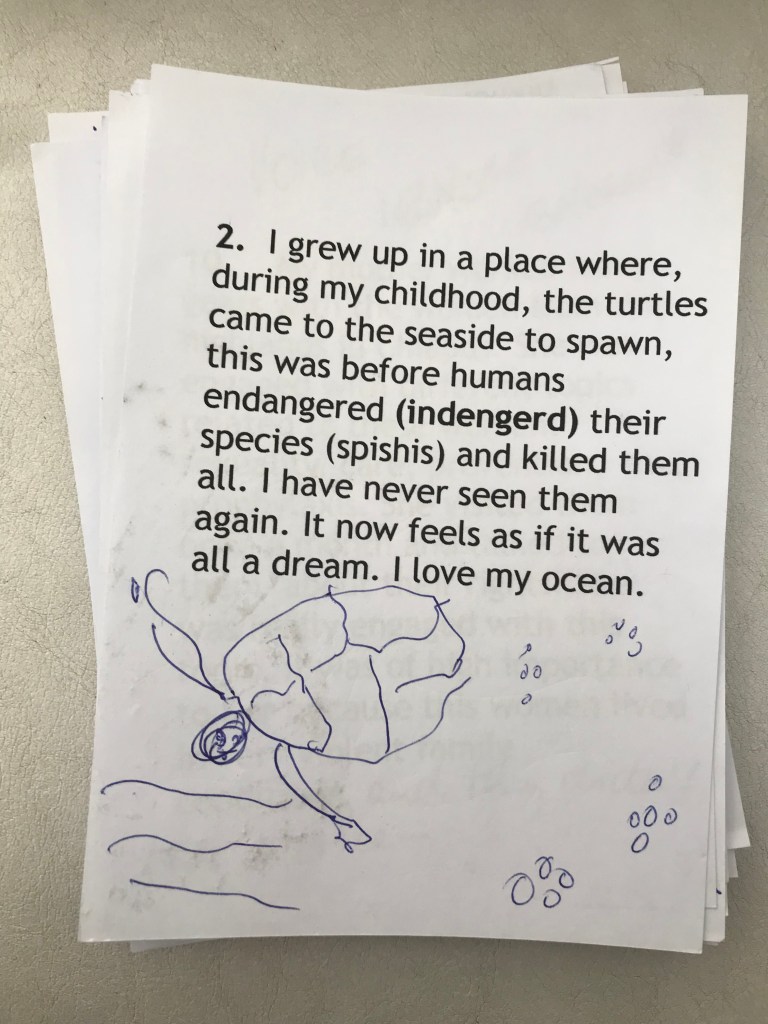 2. I grew up in a place where,
during my childhood, the turtles
came to the seaside to spawn,
this was before humans
endangered (indengerd) their
species (spishis) and killed them
all. I have never seen them
again. It now feels as if it was
all a dream. I love my ocean.